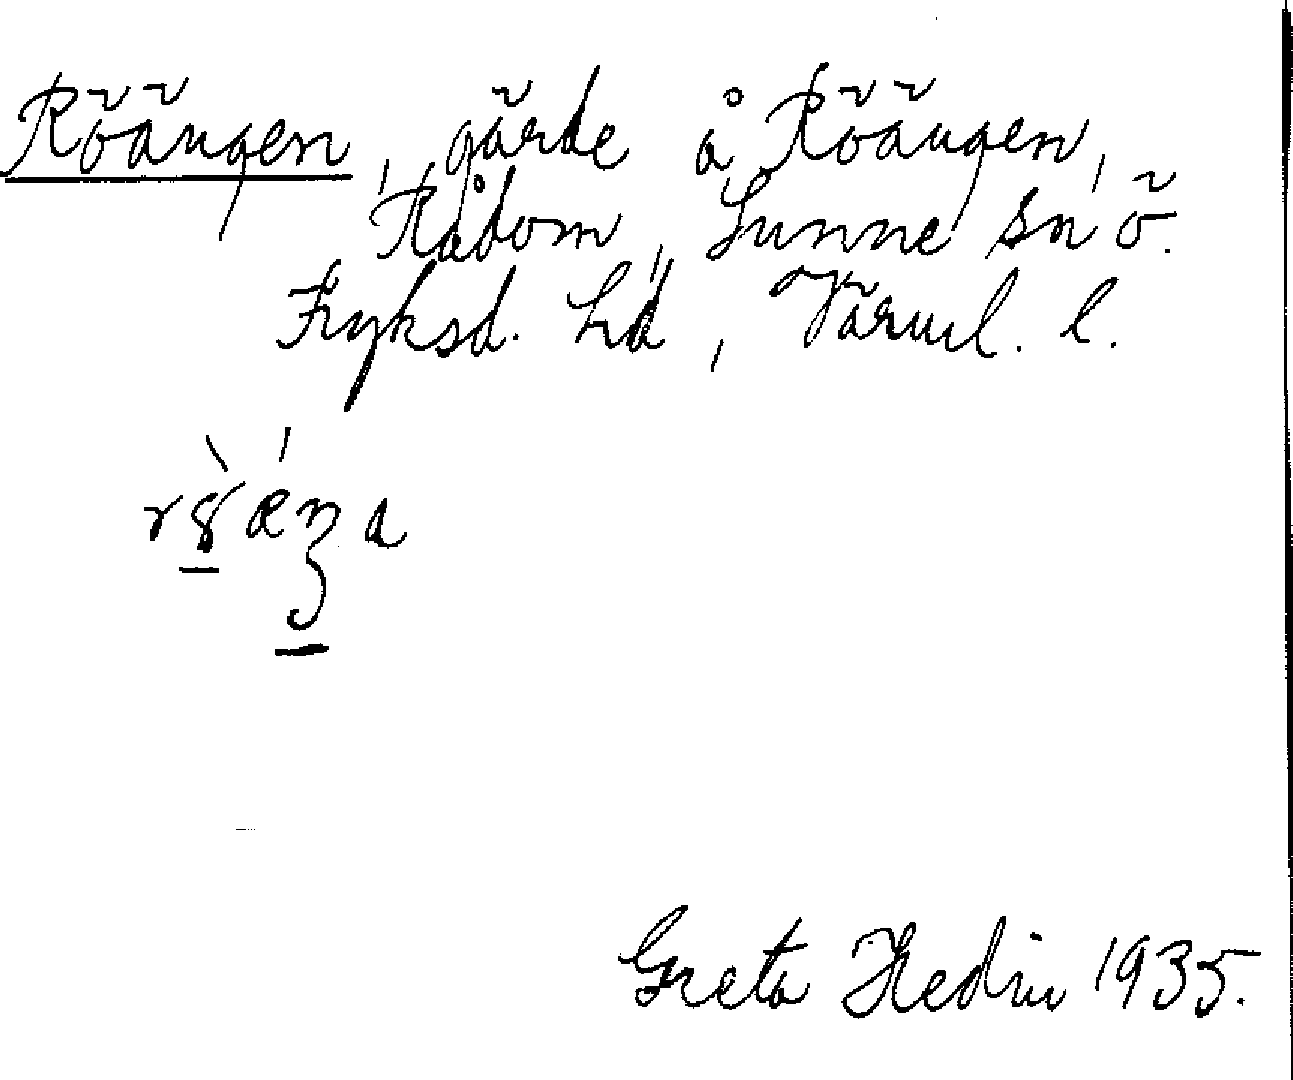 Röängen, gärde å Röängen,
Råbom, Sunne sn ö.
Fryksd. hd, Värml. l.
Greta Hedin 1935.